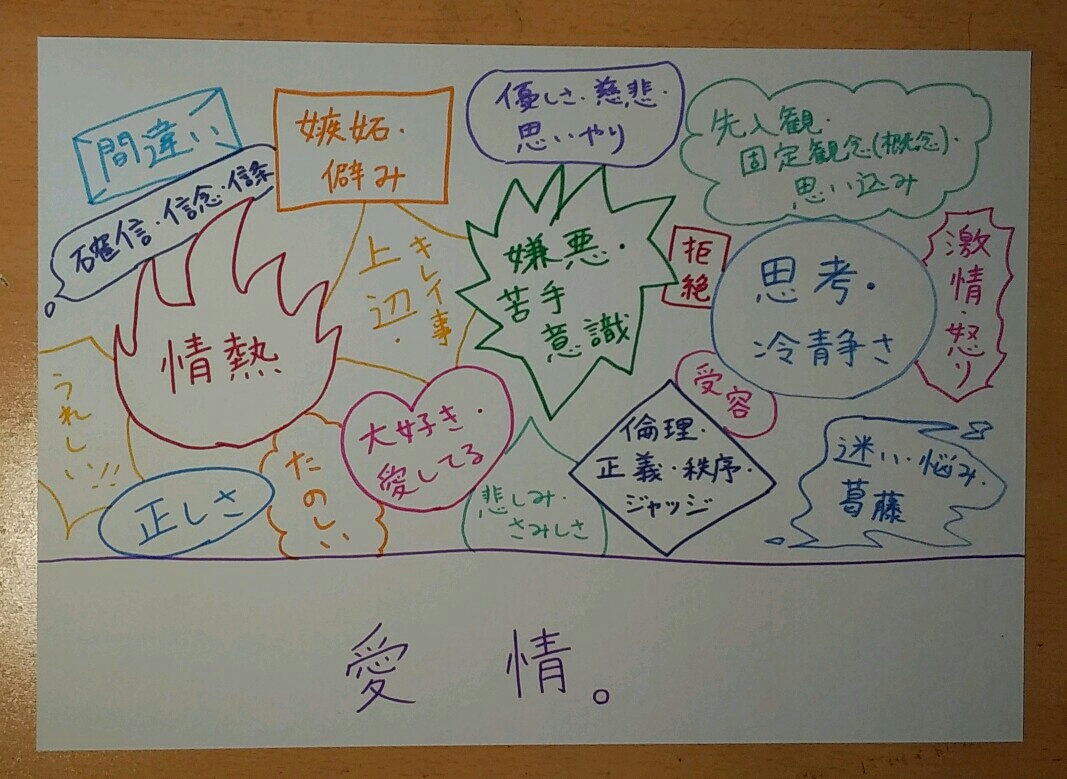 間違い
嫉妬・
僻み
優しさ・慈悲・
思いやり
先入観・
固定観念(概念)・
思い込み
確信・信念・信条
情熱
上辺・
キレイ事
嫌悪・
苦手
意識
拒絶
思考・
冷静さ
激情・怒り
うれしい!!
正しさ
たのしい
大好き・
愛してる
悲しみ・
さみしさ
受容
倫理・
正義・秩序・
ジャッジ
迷い・悩み・
葛藤
愛情。